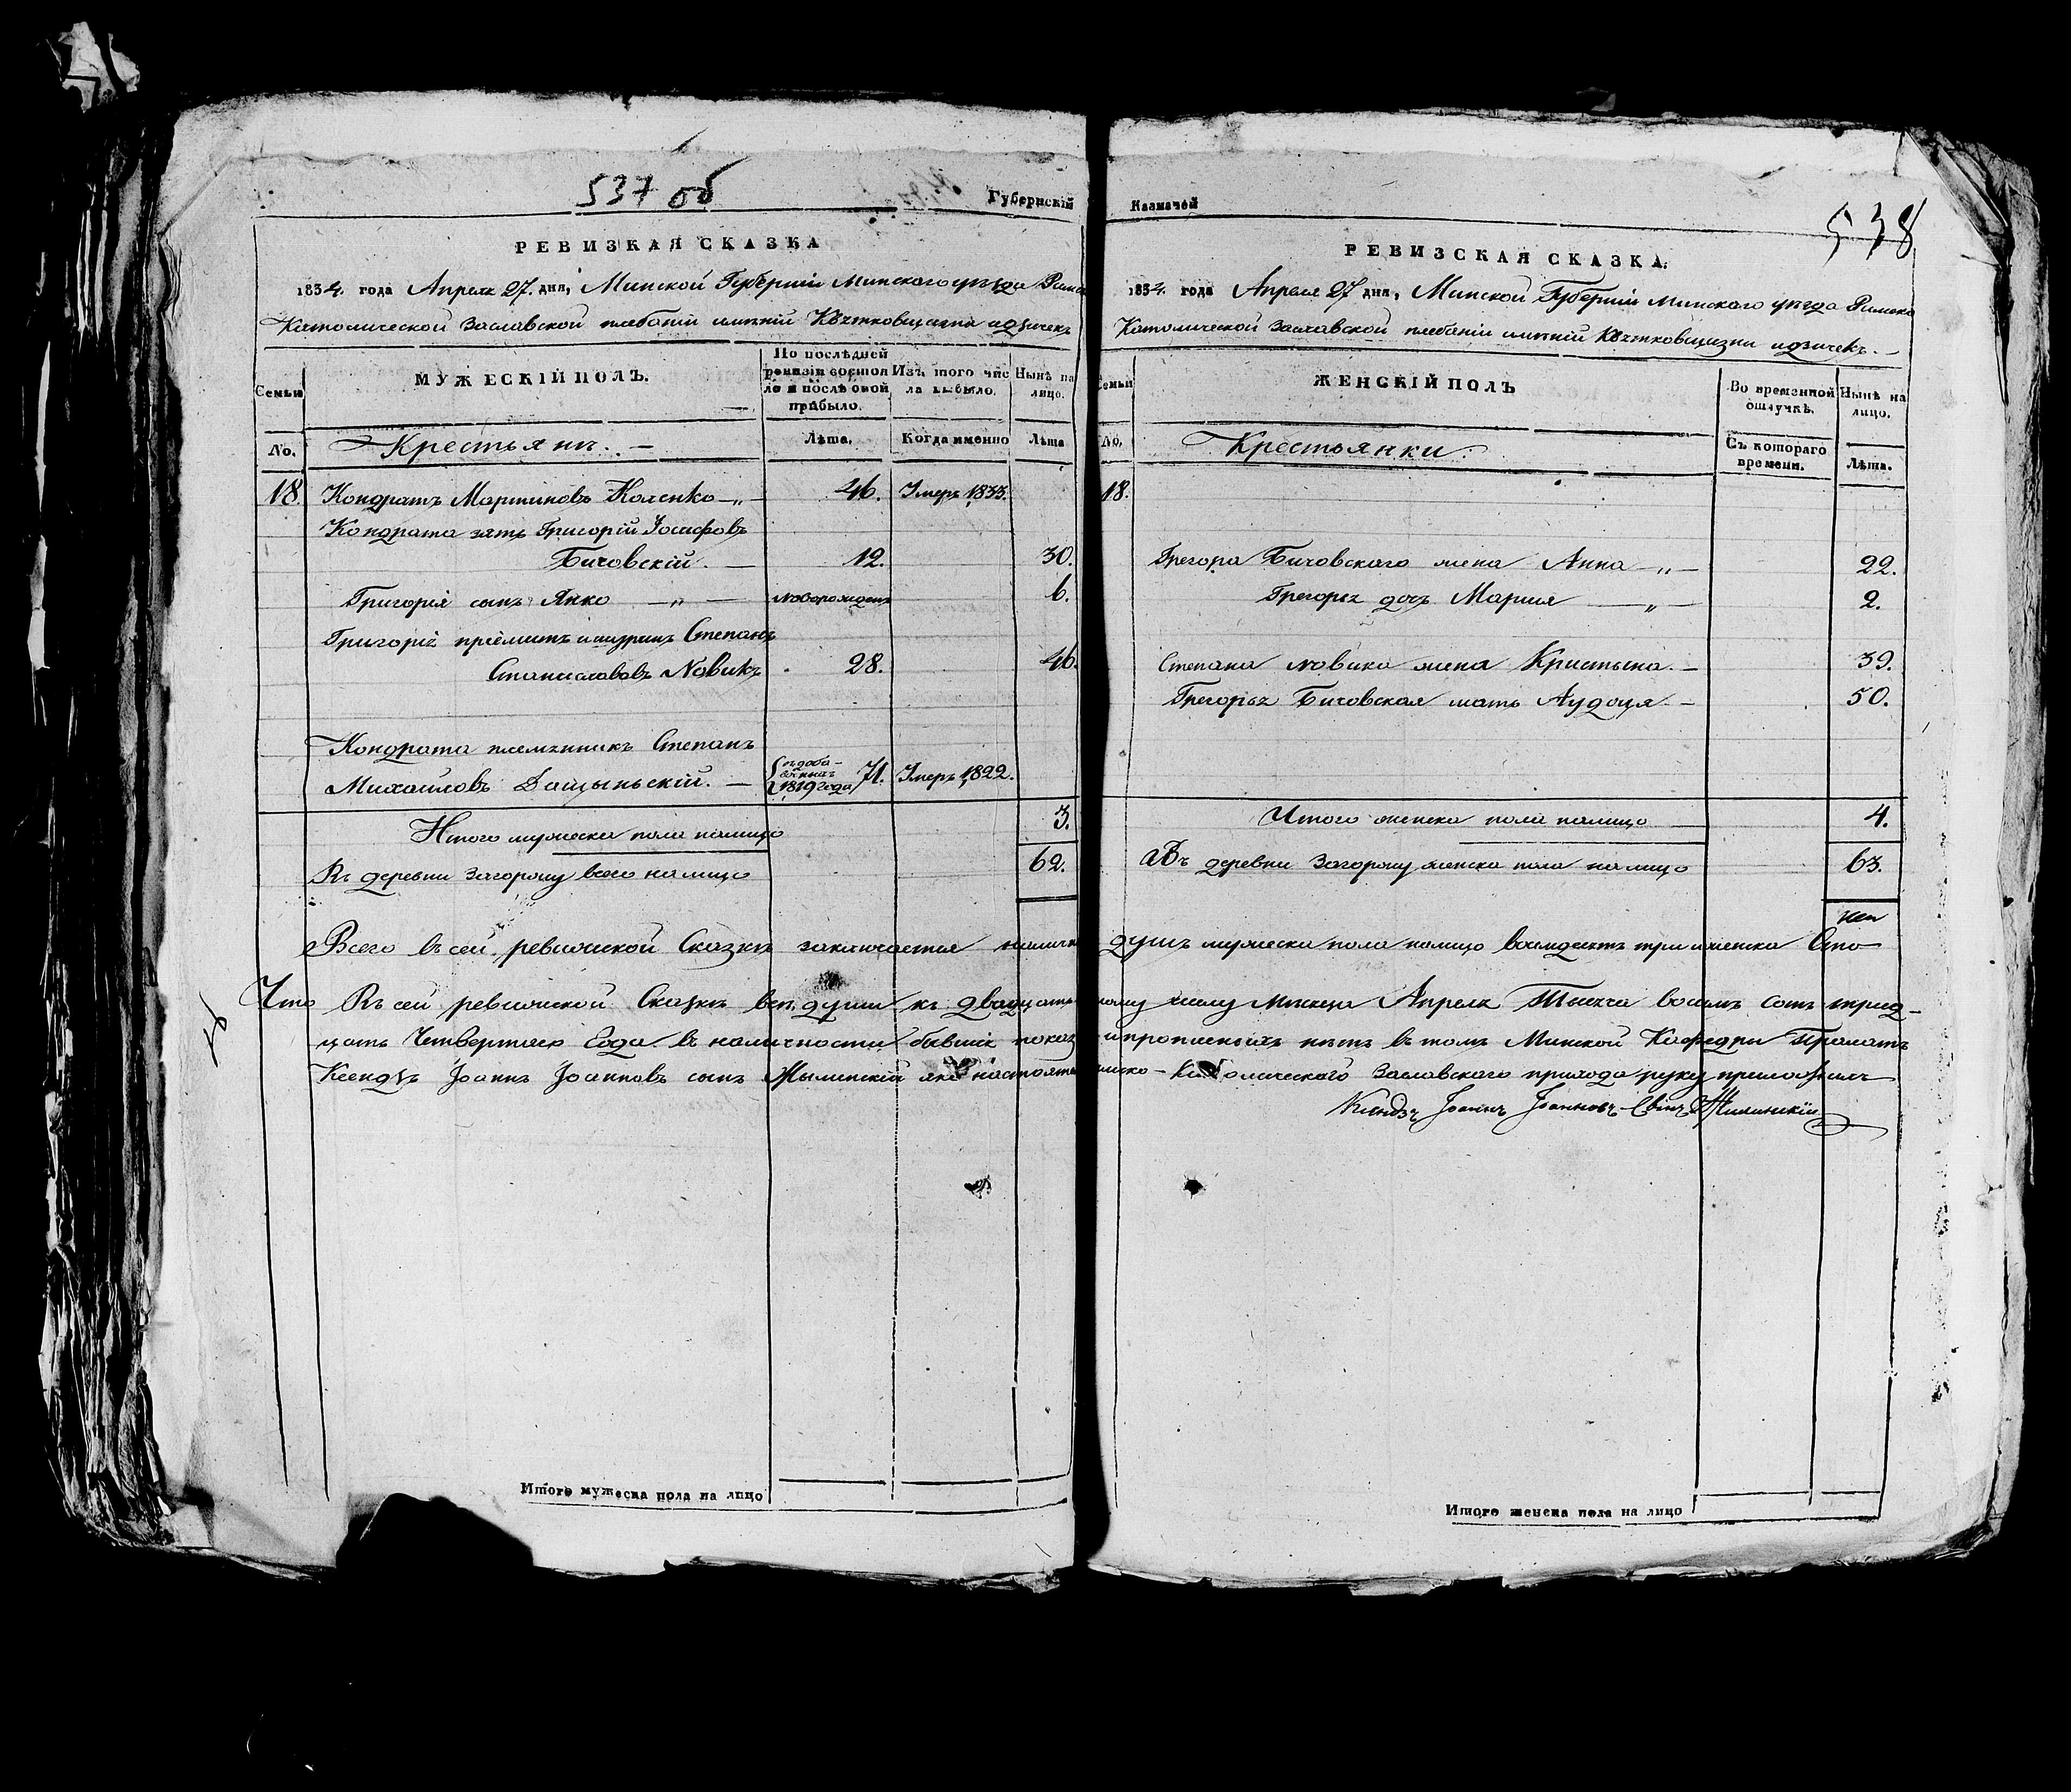 537 об
Губернскій
РЕВИЗКАЯ СКАЗКА
1834. года Апреля 27. дня, Минской Губерніи Минского уѣзда Римско
Католической Заславской плебаніи имѣній Кветковщизна
По послѣдней ревизіи состояло и послѣ оной прибыло.
Изъ того числа выбыло.
Нынѣ на лицо.
Семьи
МУЖЕСКІЙ ПОЛЪ.
No.
Крестьянъ.
Лѣта.
Когда именно
Лѣта
18. Кондратъ Мартиновъ Коленко 46. Умеръ 1833.
Кондрата зять Григорій Іосифовъ
Бичовскій. 12. 30.
Григорія сынъ Янко новорожденъ 6.
Григорія пріёмышъ и шуринъ Степанъ
Станиславовъ Новикъ 28. 46.
Кондрата племянникъ Степанъ
Михайловъ Дащыньскій. 1819 года 71. Умеръ 1822.
Итого мужеска пола налицо 3.
Въ деревни Загорцу всего налицо 62.
Казначей
538
РЕВИЗСКАЯ СКАЗКА.
1834. года Апреля 27 дня, Минской Губерніи Минского уѣзда Римско
Католической Заславской плебаніи имѣній Кветковщизни
Семьи
ЖЕНСКІЙ ПОЛЪ
Во временной отлучкѣ.
Нынѣ на лицо.
No.
Крестьянки.
Съ котораго времени.
Лѣта.
18.
Грегора Бичовского жена Анна 22.
Грегоря дочъ Марыя 2.
Степана Новика жена Кристына 39.
Грегорья Бичовская мать Аудоця 50.
Итого женска пола налицо 4.
Въ деревни Загорцу женска пола налицо 63.
Всего въ сей ревизской Сказкѣ заключается налично душъ мужеска пола налицо восмдесятъ три и женска Сто
Что Въ сей ревизской Сказкѣ всѣ души къ двадцать числу Мѣсяца Апреля Тысяча восемъ сотъ трид-
цать Четвертого Года въ наличности бывшія показ и прописныхъ нѣтъ въ томъ Минской Кафедри Прелатъ
Ксендзъ Іоаннъ Іоанновъ сынъ Жылинскій яко настоятель Римско-Католического Заславского прихода руку приложилъ
Ксендзъ Іоаннъ Іоанновъ Сынъ Жилинскій
Итого мужеска пола на лицо
Итого женска пола на лицо